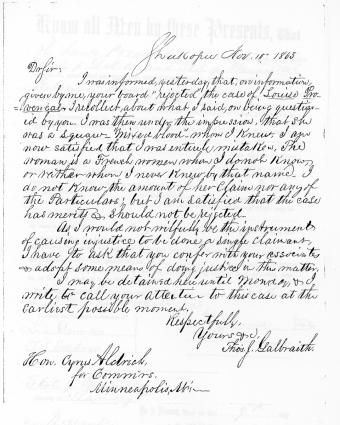 Know all Men by these Presents,
Shakopee Nov. 18" 1863
Dr Sir:
I was informed, yesterday, that, on information,
given by me, your board "rejected" the case of Louise Pro-
vencal. I recollect about what I said, on being question-
ed by you. I was then under the impression, that she
was a Squaw - Mixed blood - whom I knew. I am
now satisfied that I was entirely mistaken. The
woman is a French woman whom I do not know,
or rather whom I never knew by that name. I
do not know the amount of her Claim nor any of
the Particulars; but I am satisfied that the case
has merits & should not be rejected.
As I would not wilfully be the instruments
of causing injustice to be done, a single claimant,
I have to ask that you confer with your associates
& adopt some means of doing justice in this matter.
I may be detained here until Monday, & I
write to call your attention to this case at the
earliest possible moment.
Respectfully,
Yours &c.
Thos. J. Galbraith.
Hon. Cyrus Aldrich,
for Commrs.
Minneapolis, Min